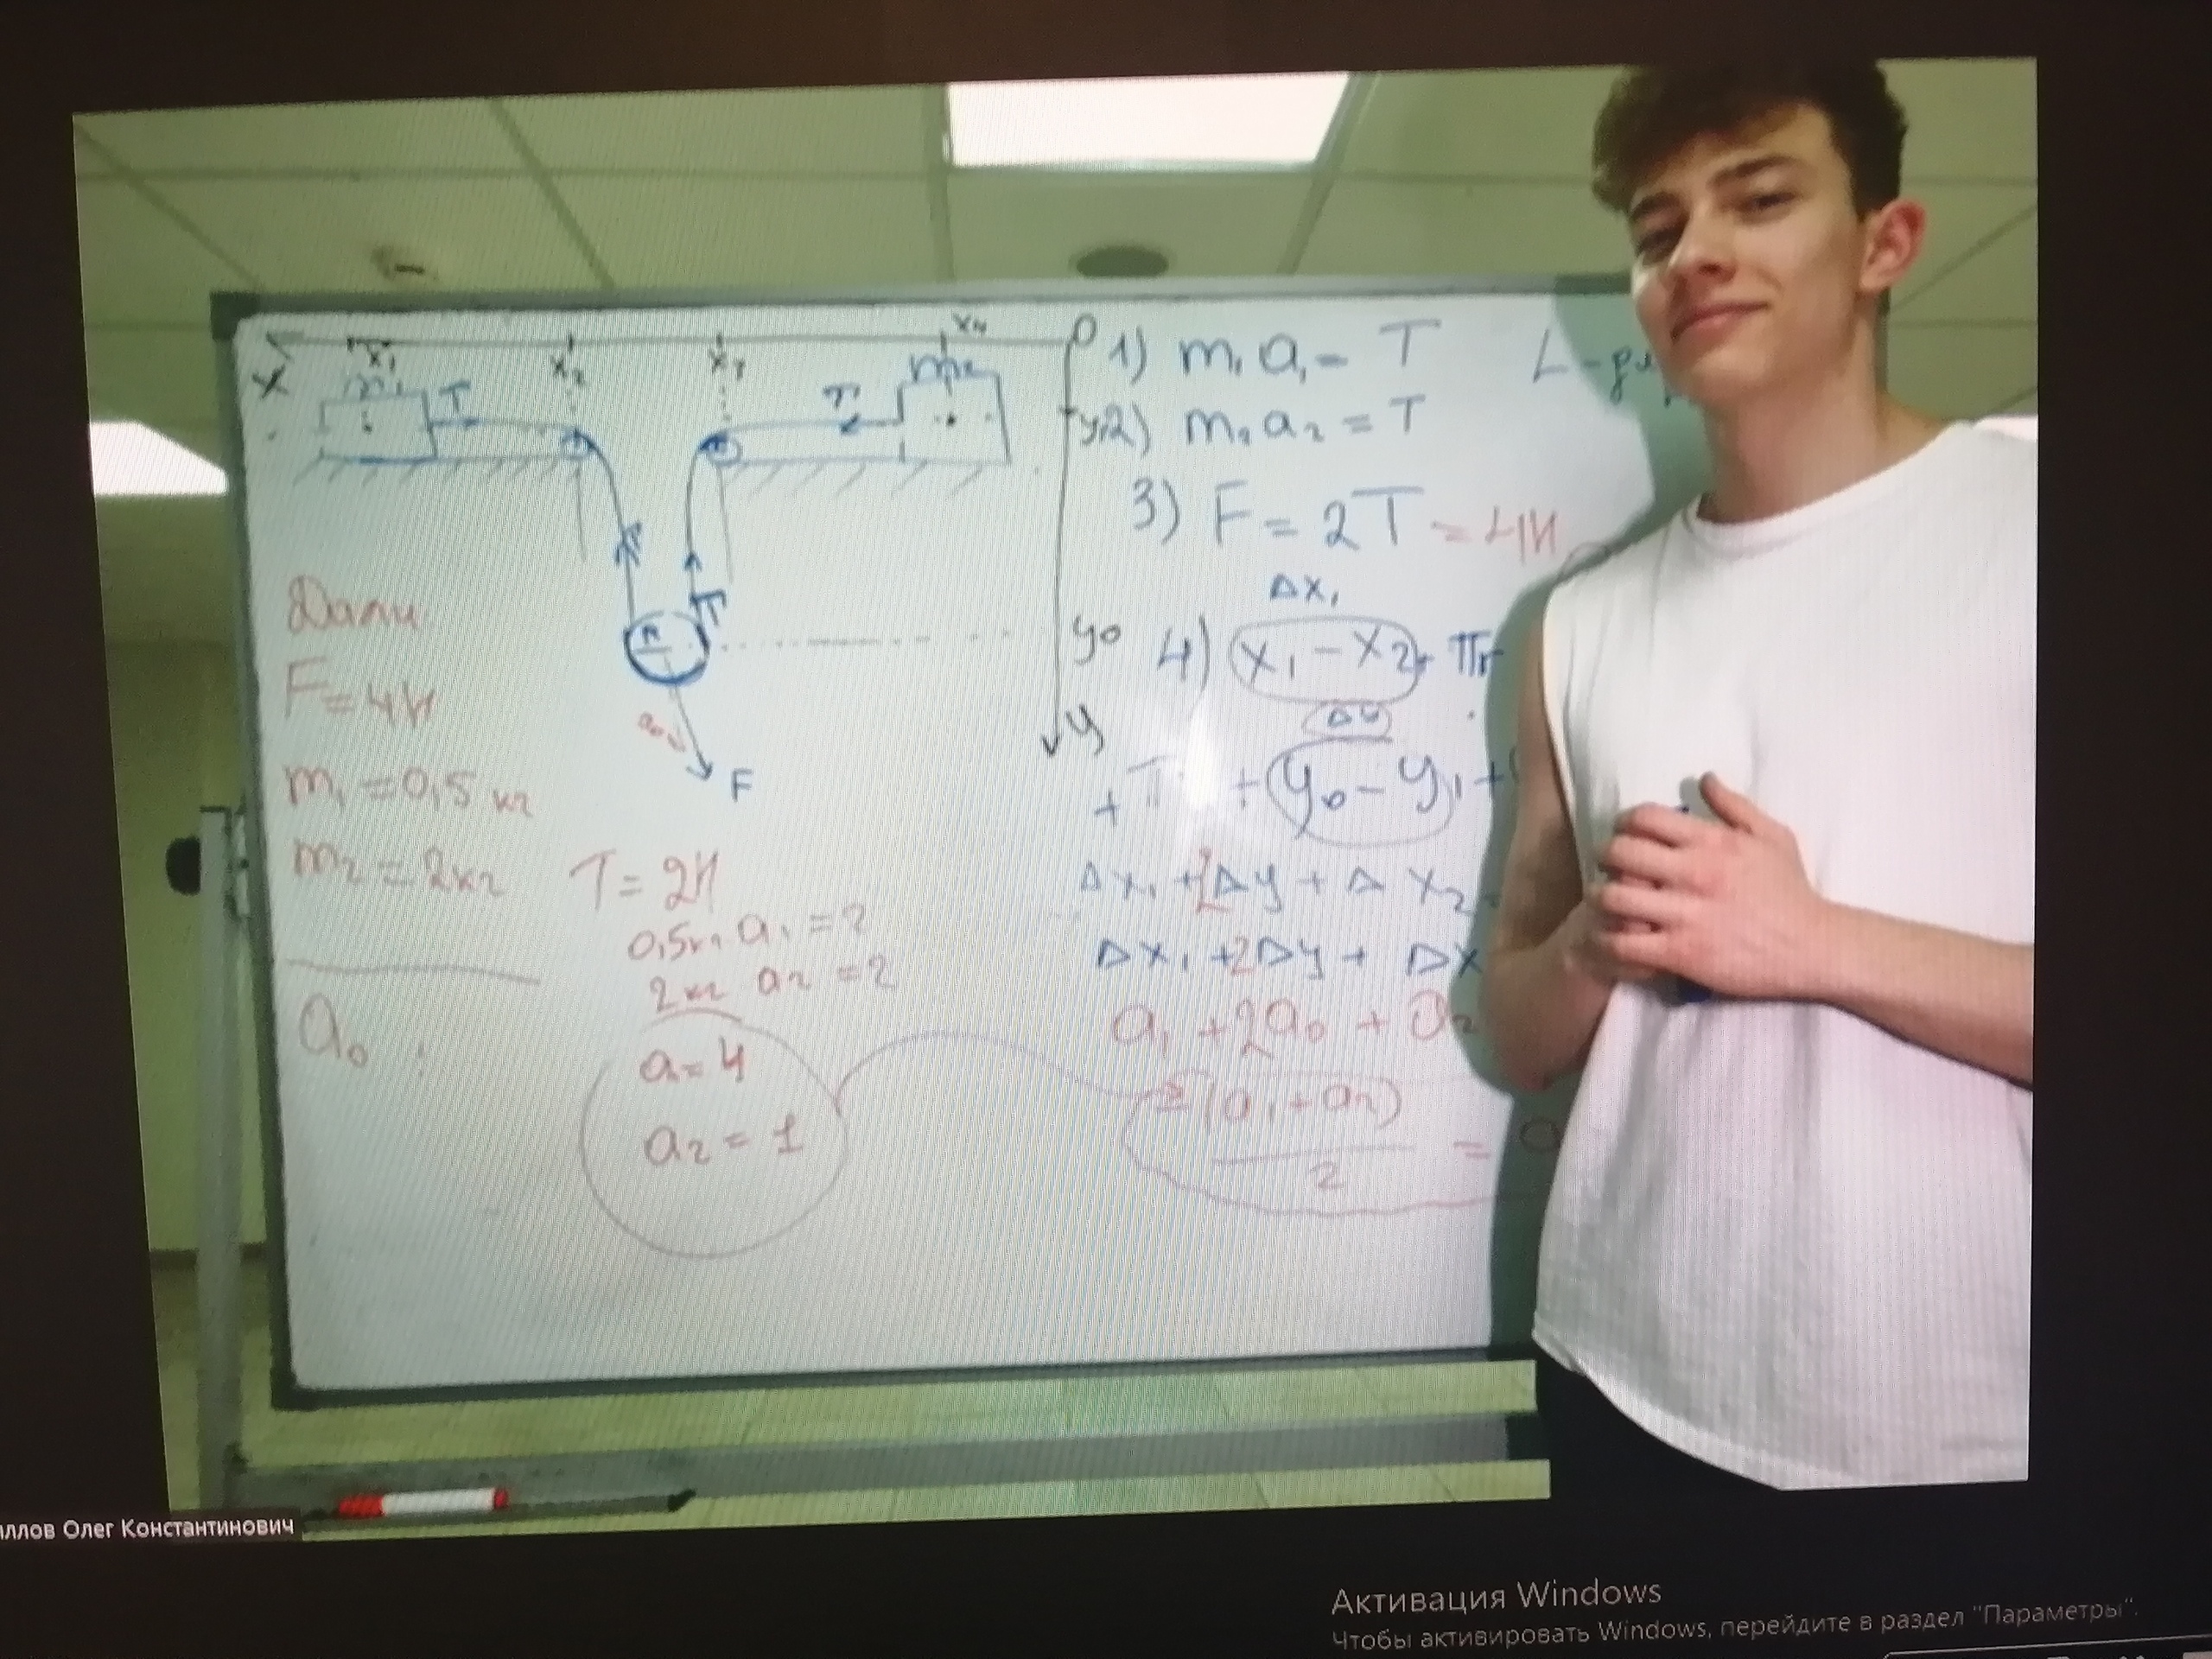 X
x₁
x₂
x₃
x₄
0
m₁
T
T
m₂
y₁
T
y₀
y
a₀
F
Дали
F = 4Н
m₁ = 0,5 кг
m₂ = 2кг
a₀
T = 2Н
0,5кг a₁ = 2
2кг a₂ = 2
a = 4
a₂ = 1
1) m₁a₁ = T
L -
2) m₂a₂ = T
3) F = 2T = 4Н
Δx₁
4) x₁ - x₂ + πr
Δy
+ π + y₀ - y₁ +
Δx₁ + 2Δy + Δx₂
Δx₁ + 2Δy + Δx
a₁ + 2a₀ + a₂
(a₁ + a₂)
2
=
ллов Олег Константинович
Активация Windows
Чтобы активировать Windows, перейдите в раздел "Параметры".